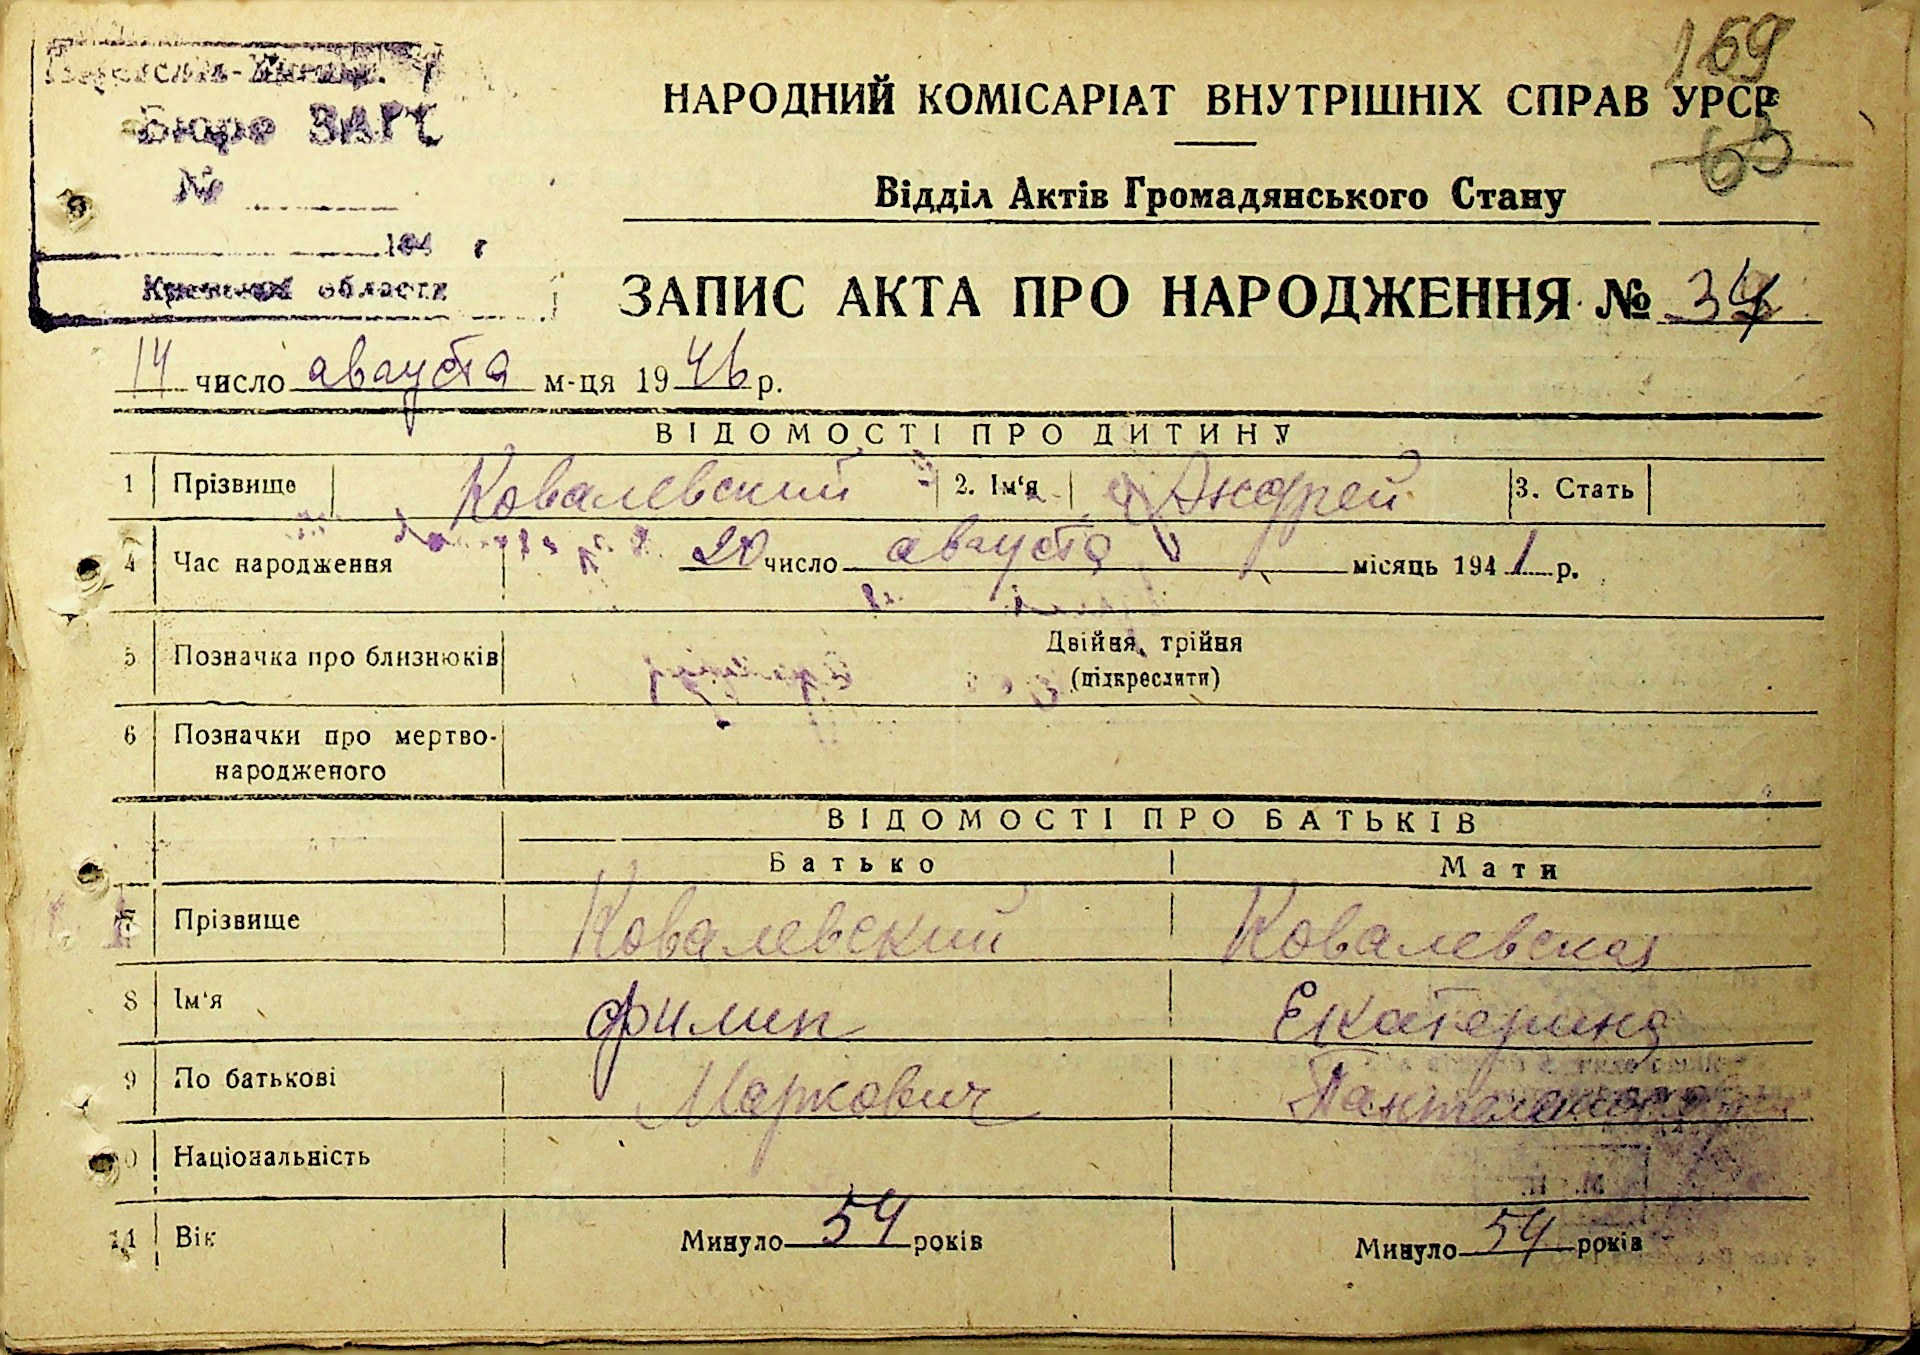 169
Бюро ЗАГС
НАРОДНИЙ КОМІСАРІАТ ВНУТРІШНІХ СПРАВ УРСР
63
№
Відділ Актів Громадянського Стану
194 г
области
ЗАПИС АКТА ПРО НАРОДЖЕННЯ №
14 число августа м-ця 1946 р.
ВІДОМОСТІ ПРО ДИТИНУ
1 Прізвище Ковалевский 2. Ім‘я Андрей 3. Стать
4 Час народження 20 число августа місяць 1941 р.
5 Позначка про близнюків Двійня, трійня
(підкреслити)
6 Позначки про мертво-
народженого
ВІДОМОСТІ ПРО БАТЬКІВ
Батько Мати
7 Прізвище Ковалевский Ковалевская
8 Ім‘я Филип Екатерина
9 По батькові Маркович
10 Національність
11 Вік Минуло 54 років Минуло 54 років